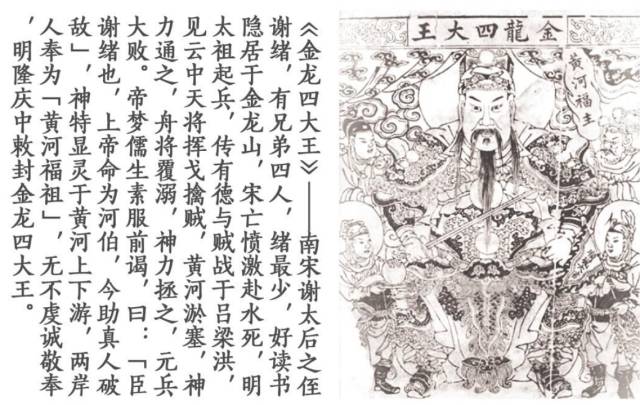 《金龙四大王》——南宋谢太后之侄
谢绪，有兄弟四人，绪最少，好读书
隐居于金龙山，宋亡愤激赴水死，明
太祖起兵，传有德与贼战于吕梁洪，
见云中天将挥戈擒贼，黄河淤塞，神
力通之，舟将覆溺，神力拯之，元兵
大败。帝梦儒生素服前谒，曰：「臣
谢绪也，上帝命为河伯，今助真人破
敌」，神特显灵于黄河上下游，两岸
人奉为「黄河福祖」，无不虔诚敬奉
，明隆庆中敕封金龙四大王。
金龍四大王
黄河福主